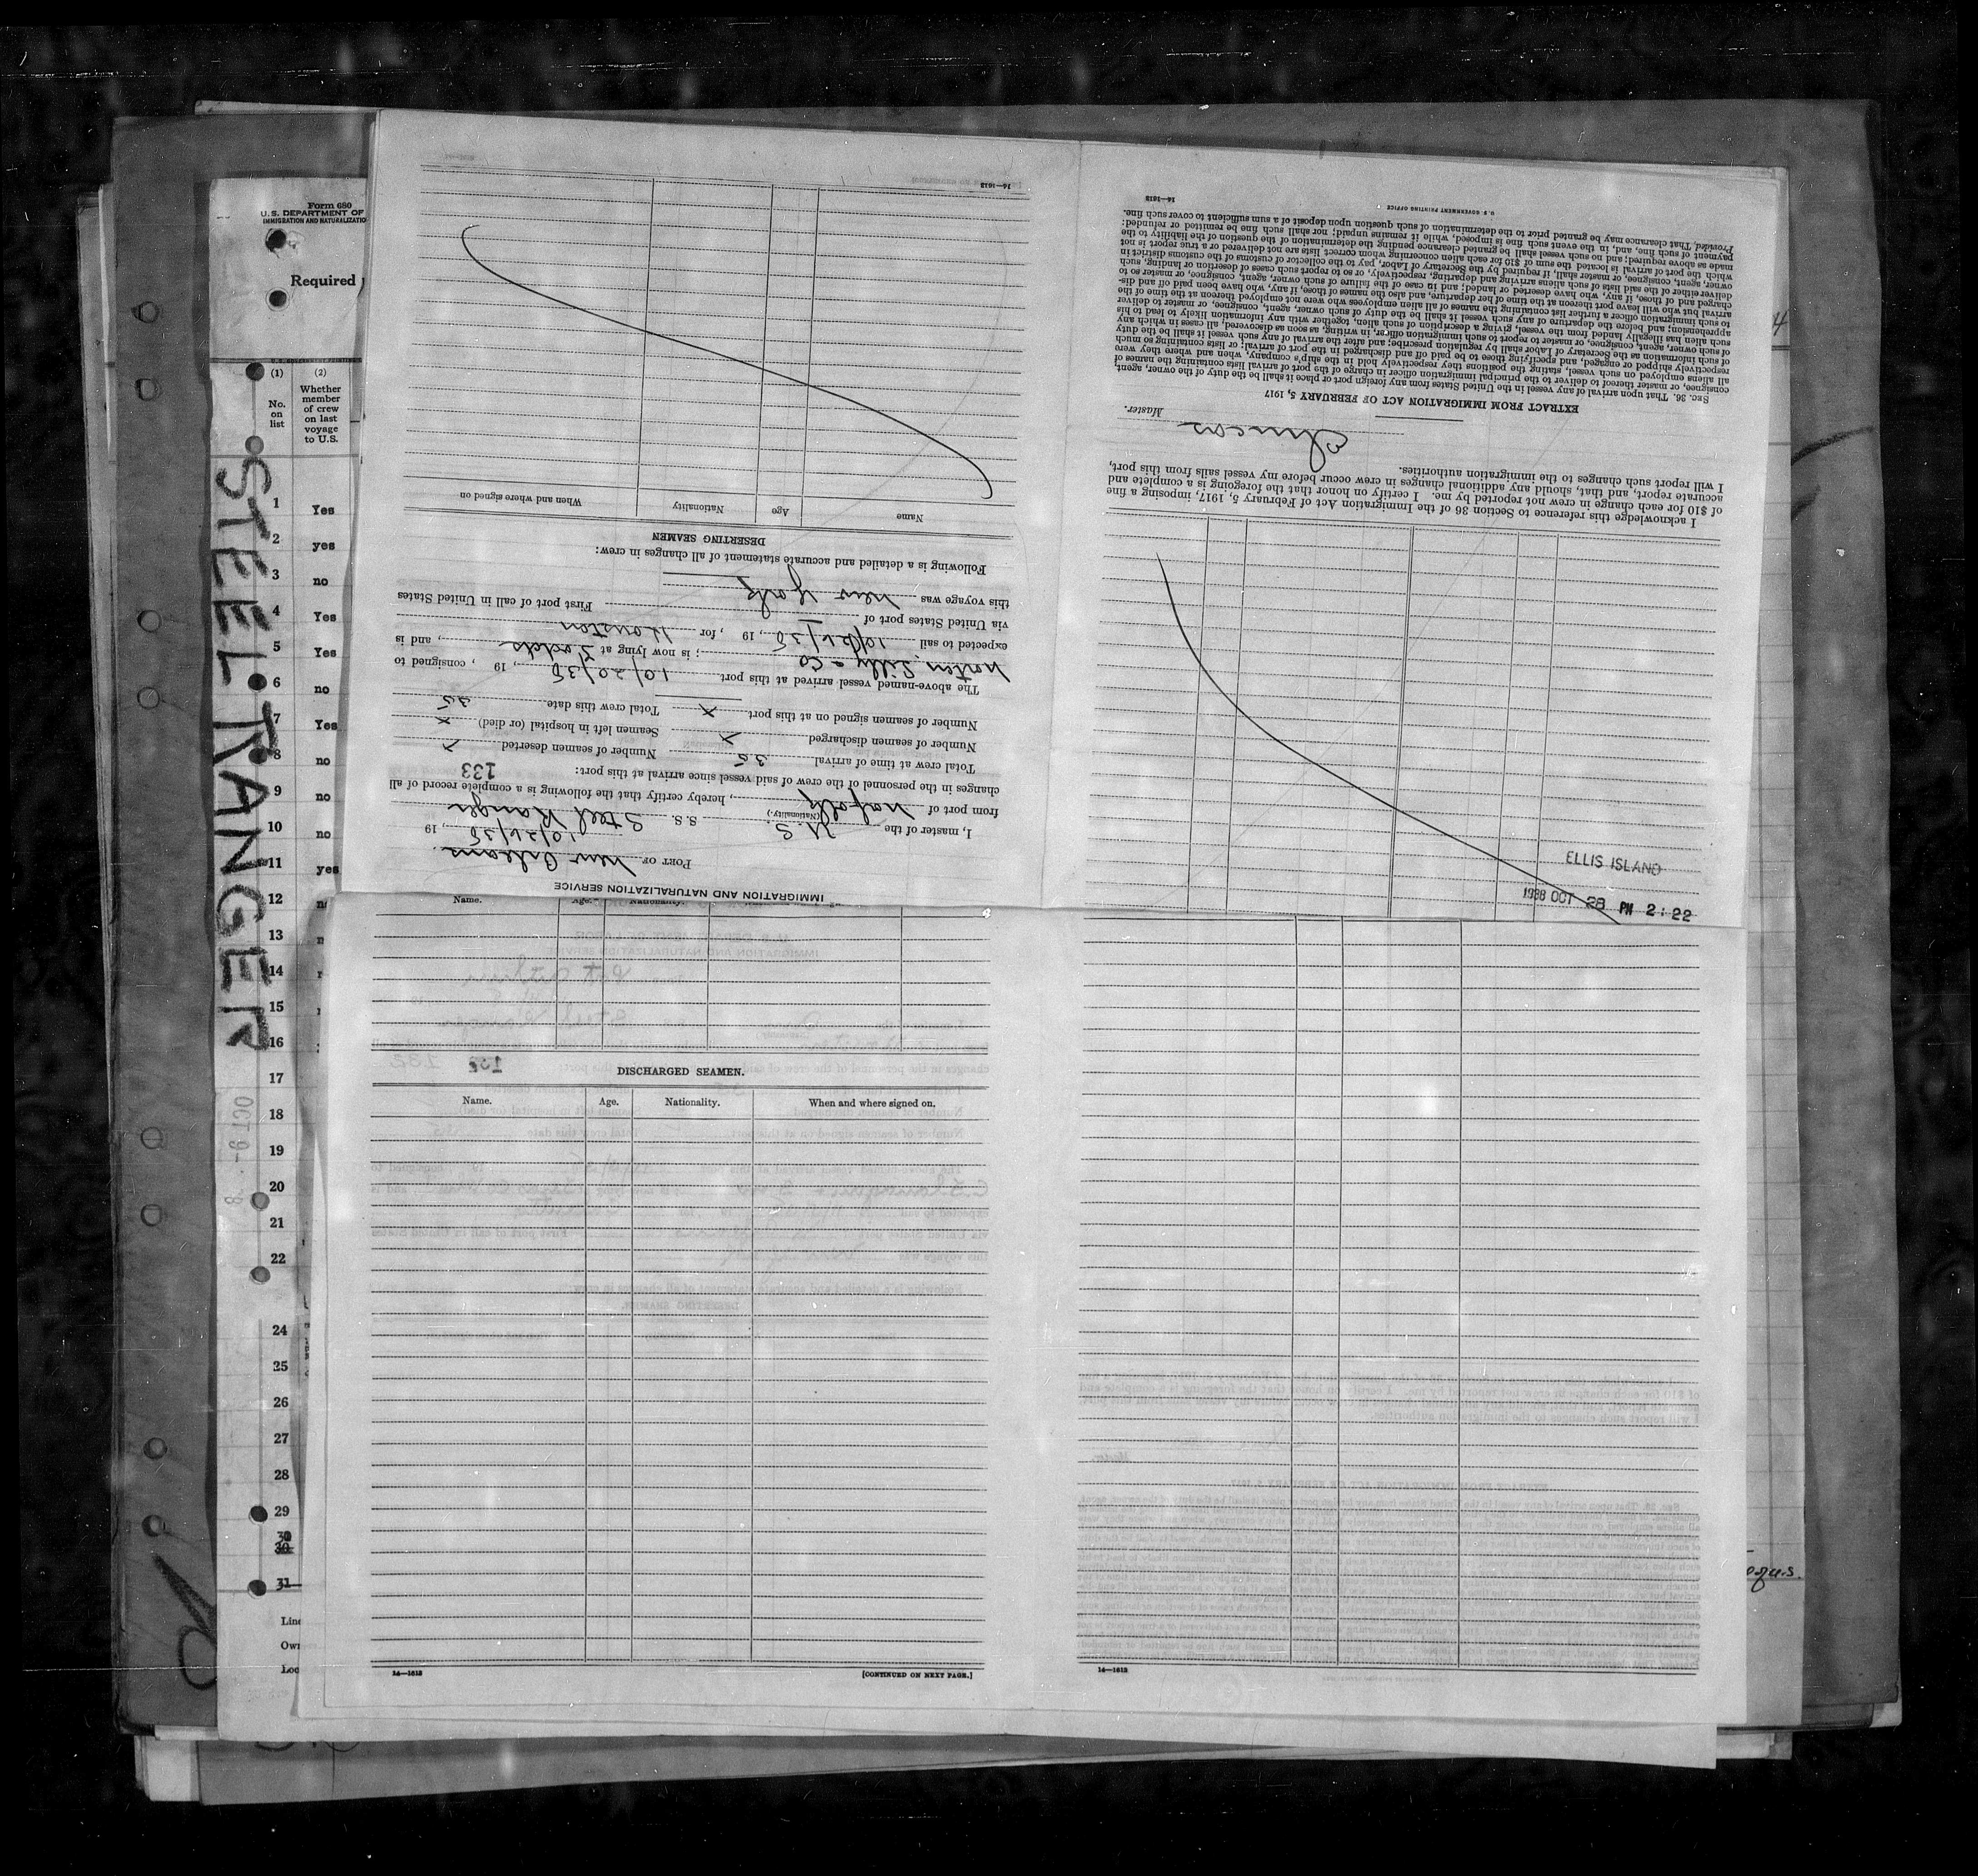 Form 680
U.S. DEPARTMENT OF
IMMIGRATION AND NATURALIZATIO
Required
(1)
No.
on
list
(2)
Whether
member
of crew
on last
voyage
to U.S.
1 Yes
2 yes
3 no
4 Yes
5 Yes
6 no
7 Yes
8 no
9 no
10 no
11 yes
12
13
14
15
16
17
18
19
20
21
22
24
25
26
27
28
29
30
30
31
Line
Own
Loc
STEEL RANGER
OCT 9-
IMMIGRATION AND NATURALIZATION SERVICE
PORT OF New Orleans
10/26/38, 19
I, master of the U.S. S.S. Steel Ranger
(Nationality.)
from port of Norfolk, hereby certify that the following is a complete record of all
changes in the personnel of the crew of said vessel since arrival at this port: 133
Total crew at time of arrival 35 Number of seamen deserted x
Number of seamen discharged x Seamen left in hospital (or died) x
Number of seamen signed on at this port x Total crew this date 35
The above-named vessel arrived at this port 10/20/38, 19 , consigned to
Norton Lilly & Co; is now lying at , and is
expected to sail 10/26/38, 19 , for Houston
via United States port of First port of call in United States
this voyage was New York
Following is a detailed and accurate statement of all changes in crew:
DESERTING SEAMEN
Name Age Nationality When and where signed on
14—1613
ELLIS ISLAND
1938 OCT 28 PM 2:22
I acknowledge this reference to Section 36 of the Immigration Act of February 5, 1917, imposing a fine
of $10 for each change in crew not reported by me. I certify on honor that the foregoing is a complete and
accurate report, and that, should any additional changes in crew occur before my vessel sails from this port,
I will report such changes to the immigration authorities.
Master.
EXTRACT FROM IMMIGRATION ACT OF FEBRUARY 5, 1917
SEC. 36. That upon arrival of any vessel in the United States from any foreign port or place it shall be the duty of the owner, agent,
consignee, or master thereof to deliver to the principal immigration officer in charge of the port of arrival lists containing the names of
all aliens employed on such vessel, stating the positions they respectively hold in the ship's company, when and where they were
respectively shipped or engaged, and specifying those to be paid off and discharged in the port of arrival; or lists containing so much
of such information as the Secretary of Labor shall by regulation prescribe; and after the arrival of any such vessel it shall be the duty
of such owner, agent, consignee, or master to report to such immigration officer, in writing, as soon as discovered, all cases in which any
such alien has illegally landed from the vessel, giving a description of such alien, together with any information likely to lead to his
apprehension; and before the departure of any such vessel it shall be the duty of such owner, agent, consignee, or master to deliver
to such immigration officer a further list containing the names of all alien employees who were not employed thereon at the time of the
arrival but who will leave port thereon at the time of her departure, and also the names of those, if any, who have been paid off and dis-
charged and of those, if any, who have deserted or landed; and in case of the failure of such owner, agent, consignee, or master so to
deliver either of the said lists of such aliens arriving and departing, respectively, or so to report such cases of desertion or landing, such
owner, agent, consignee, or master shall, if required by the Secretary of Labor, pay to the collector of customs of the customs district in
which the port of arrival is located the sum of $10 for each alien concerning whom correct lists are not delivered or a true report is not
made as above required; and no such vessel shall be granted clearance pending the determination of the question of the liability to the
payment of such fine, and, in the event such fine is imposed, while it remains unpaid; nor shall such fine be remitted or refunded:
Provided, That clearance may be granted prior to the determination of such question upon deposit of a sum sufficient to cover such fine.
U. S. GOVERNMENT PRINTING OFFICE 14—1613
Name. Age. Nationality.
DISCHARGED SEAMEN.
Name. Age. Nationality. When and where signed on.
14—1613 [CONTINUED ON NEXT PAGE.]
14—1613